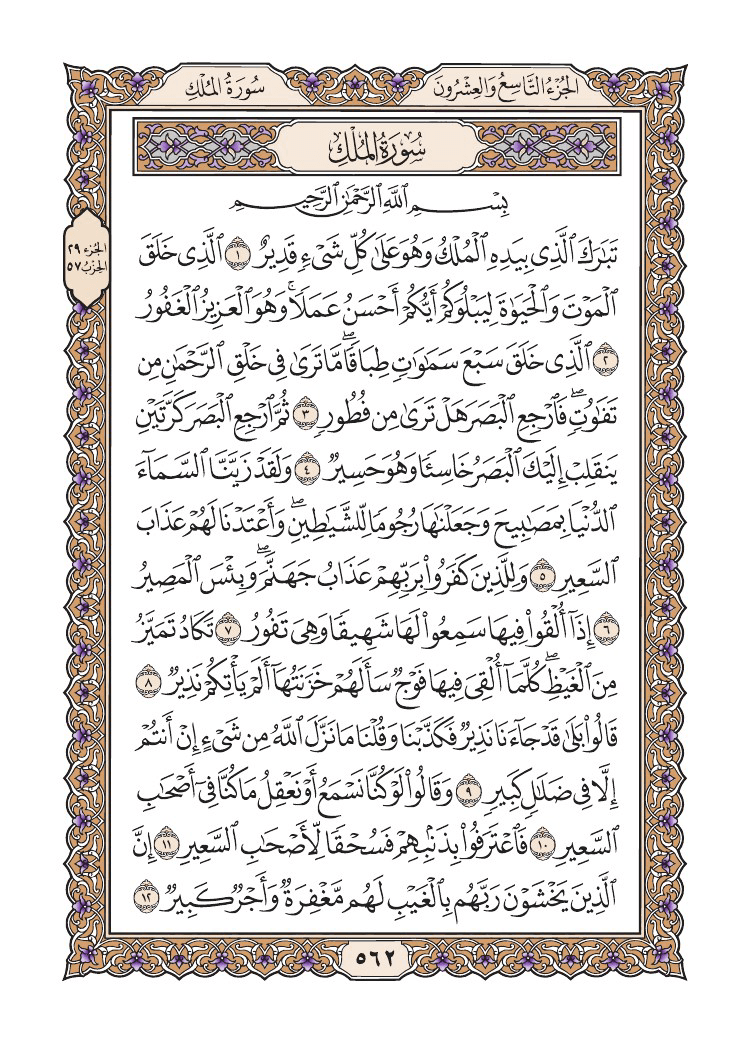 الجُزْءُ التَّاسِعُ وَالعِشْرُونَ
سُورَةُ المُلْكِ
سُورَةُ المُلْكِ
بِسْمِ اللَّهِ الرَّحْمَٰنِ الرَّحِيمِ
الجُزء ٢٩
الحِزب ٥٧
تَبَٰرَكَ ٱلَّذِى بِيَدِهِ ٱلْمُلْكُ وَهُوَ عَلَىٰ كُلِّ شَىْءٍ قَدِيرٌ ١ ٱلَّذِى خَلَقَ
ٱلْمَوْتَ وَٱلْحَيَوٰةَ لِيَبْلُوَكُمْ أَيُّكُمْ أَحْسَنُ عَمَلًا ۚ وَهُوَ ٱلْعَزِيزُ ٱلْغَفُورُ
٢ ٱلَّذِى خَلَقَ سَبْعَ سَمَٰوَٰتٍ طِبَاقًا ۖ مَّا تَرَىٰ فِى خَلْقِ ٱلرَّحْمَٰنِ مِن
تَفَٰوُتٍ ۖ فَٱرْجِعِ ٱلْبَصَرَ هَلْ تَرَىٰ مِن فُطُورٍ ٣ ثُمَّ ٱرْجِعِ ٱلْبَصَرَ كَرَّتَيْنِ
يَنقَلِبْ إِلَيْكَ ٱلْبَصَرُ خَاسِئًا وَهُوَ حَسِيرٌ ٤ وَلَقَدْ زَيَّنَّا ٱلسَّمَآءَ
ٱلدُّنْيَا بِمَصَٰبِيحَ وَجَعَلْنَٰهَا رُجُومًا لِّلشَّيَٰطِينِ ۖ وَأَعْتَدْنَا لَهُمْ عَذَابَ
ٱلسَّعِيرِ ٥ وَلِلَّذِينَ كَفَرُوا۟ بِرَبِّهِمْ عَذَابُ جَهَنَّمَ ۖ وَبِئْسَ ٱلْمَصِيرُ
٦ إِذَآ أُلْقُوا۟ فِيهَا سَمِعُوا۟ لَهَا شَهِيقًا وَهِىَ تَفُورُ ٧ تَكَادُ تَمَيَّزُ
مِنَ ٱلْغَيْظِ ۖ كُلَّمَآ أُلْقِىَ فِيهَا فَوْجٌ سَأَلَهُمْ خَزَنَتُهَآ أَلَمْ يَأْتِكُمْ نَذِيرٌ ٨
قَالُوا۟ بَلَىٰ قَدْ جَآءَنَا نَذِيرٌ فَكَذَّبْنَا وَقُلْنَا مَا نَزَّلَ ٱللَّهُ مِن شَىْءٍ إِنْ أَنتُمْ
إِلَّا فِى ضَلَٰلٍ كَبِيرٍ ٩ وَقَالُوا۟ لَوْ كُنَّا نَسْمَعُ أَوْ نَعْقِلُ مَا كُنَّا فِىٓ أَصْحَٰبِ
ٱلسَّعِيرِ ١٠ فَٱعْتَرَفُوا۟ بِذَنۢبِهِمْ فَسُحْقًا لِّأَصْحَٰبِ ٱلسَّعِيرِ ١١ إِنَّ
ٱلَّذِينَ يَخْشَوْنَ رَبَّهُم بِٱلْغَيْبِ لَهُم مَّغْفِرَةٌ وَأَجْرٌ كَبِيرٌ ١٢
٥٦٢